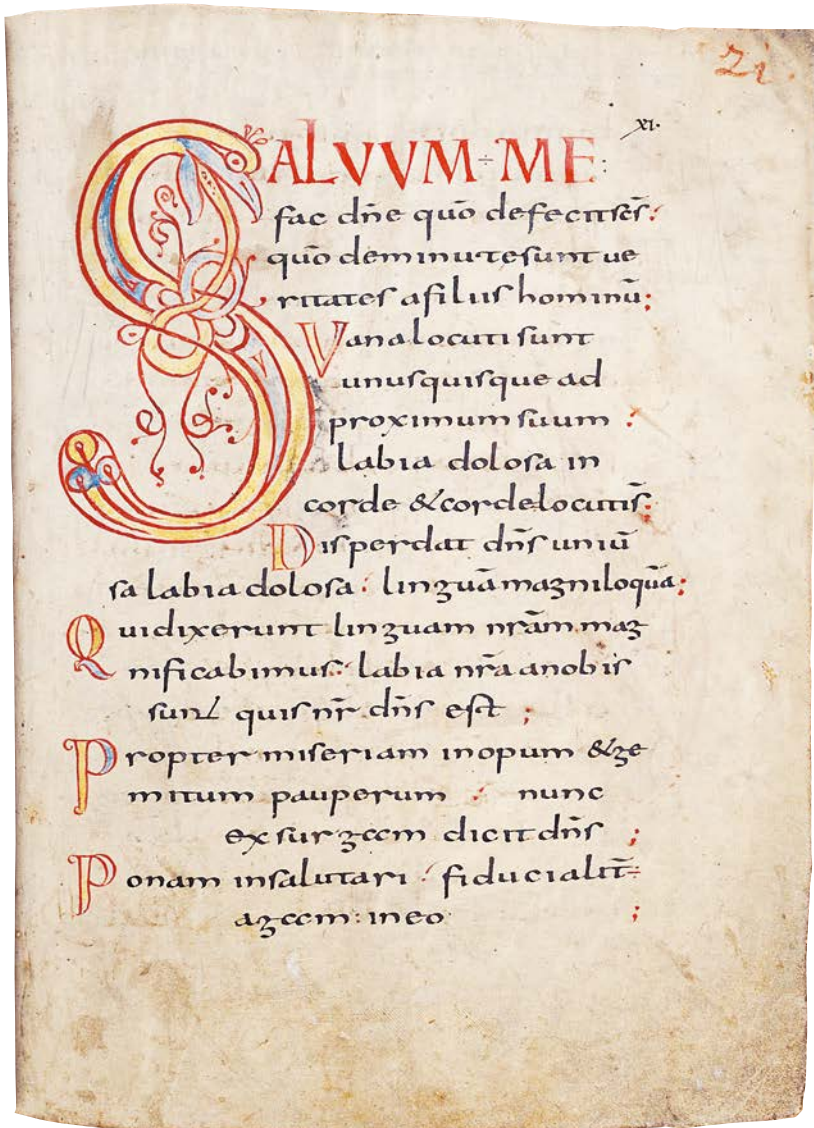 21.
xi.
SALVVM ÷ ME:
fac dn̄e quō defecit sc̄s:
quō deminutesunt ue
ritates afiliis hominū;
Vana locuti sunt
unusquisque ad
proximum suum :
labia dolosa in
corde & corde locuti s̄:
Disperdat dn̄s uniū
sa labia dolosa : linguā magniloquā;
Qui dixerunt linguam nr̄am mag
nificabimus: labia nr̄a anobis
sunt quis nr̄ dn̄s est ;
Propter miseriam inopum & ge
mitum pauperum : nunc
exsurgam dicit dn̄s ;
Ponam insalutari : fiducialit̄:
agam : in eo ;